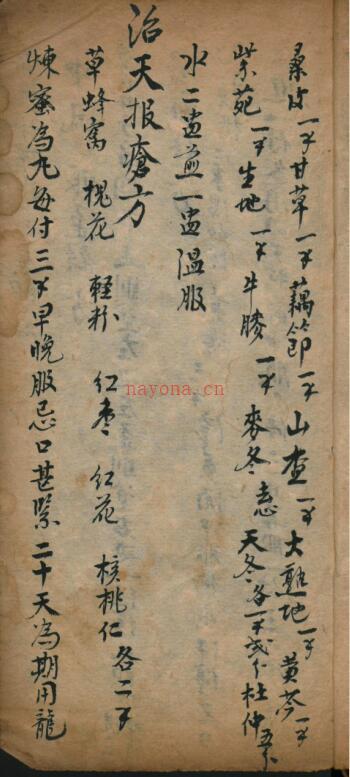 桑皮一千甘草一千藕節一千山查一千大熟地一千黄芩一千
紫苑一千生地一千牛膝一千麥冬志天冬各一千弍分杜仲五分
水二盅煎一盅温服
治天报瘡方
草蜂窩 槐花 輕粉 红枣 红花 核桃仁各二千
煉蜜為丸每付三千早晚服忌口甚緊二十天為期用龍
nayona.cn